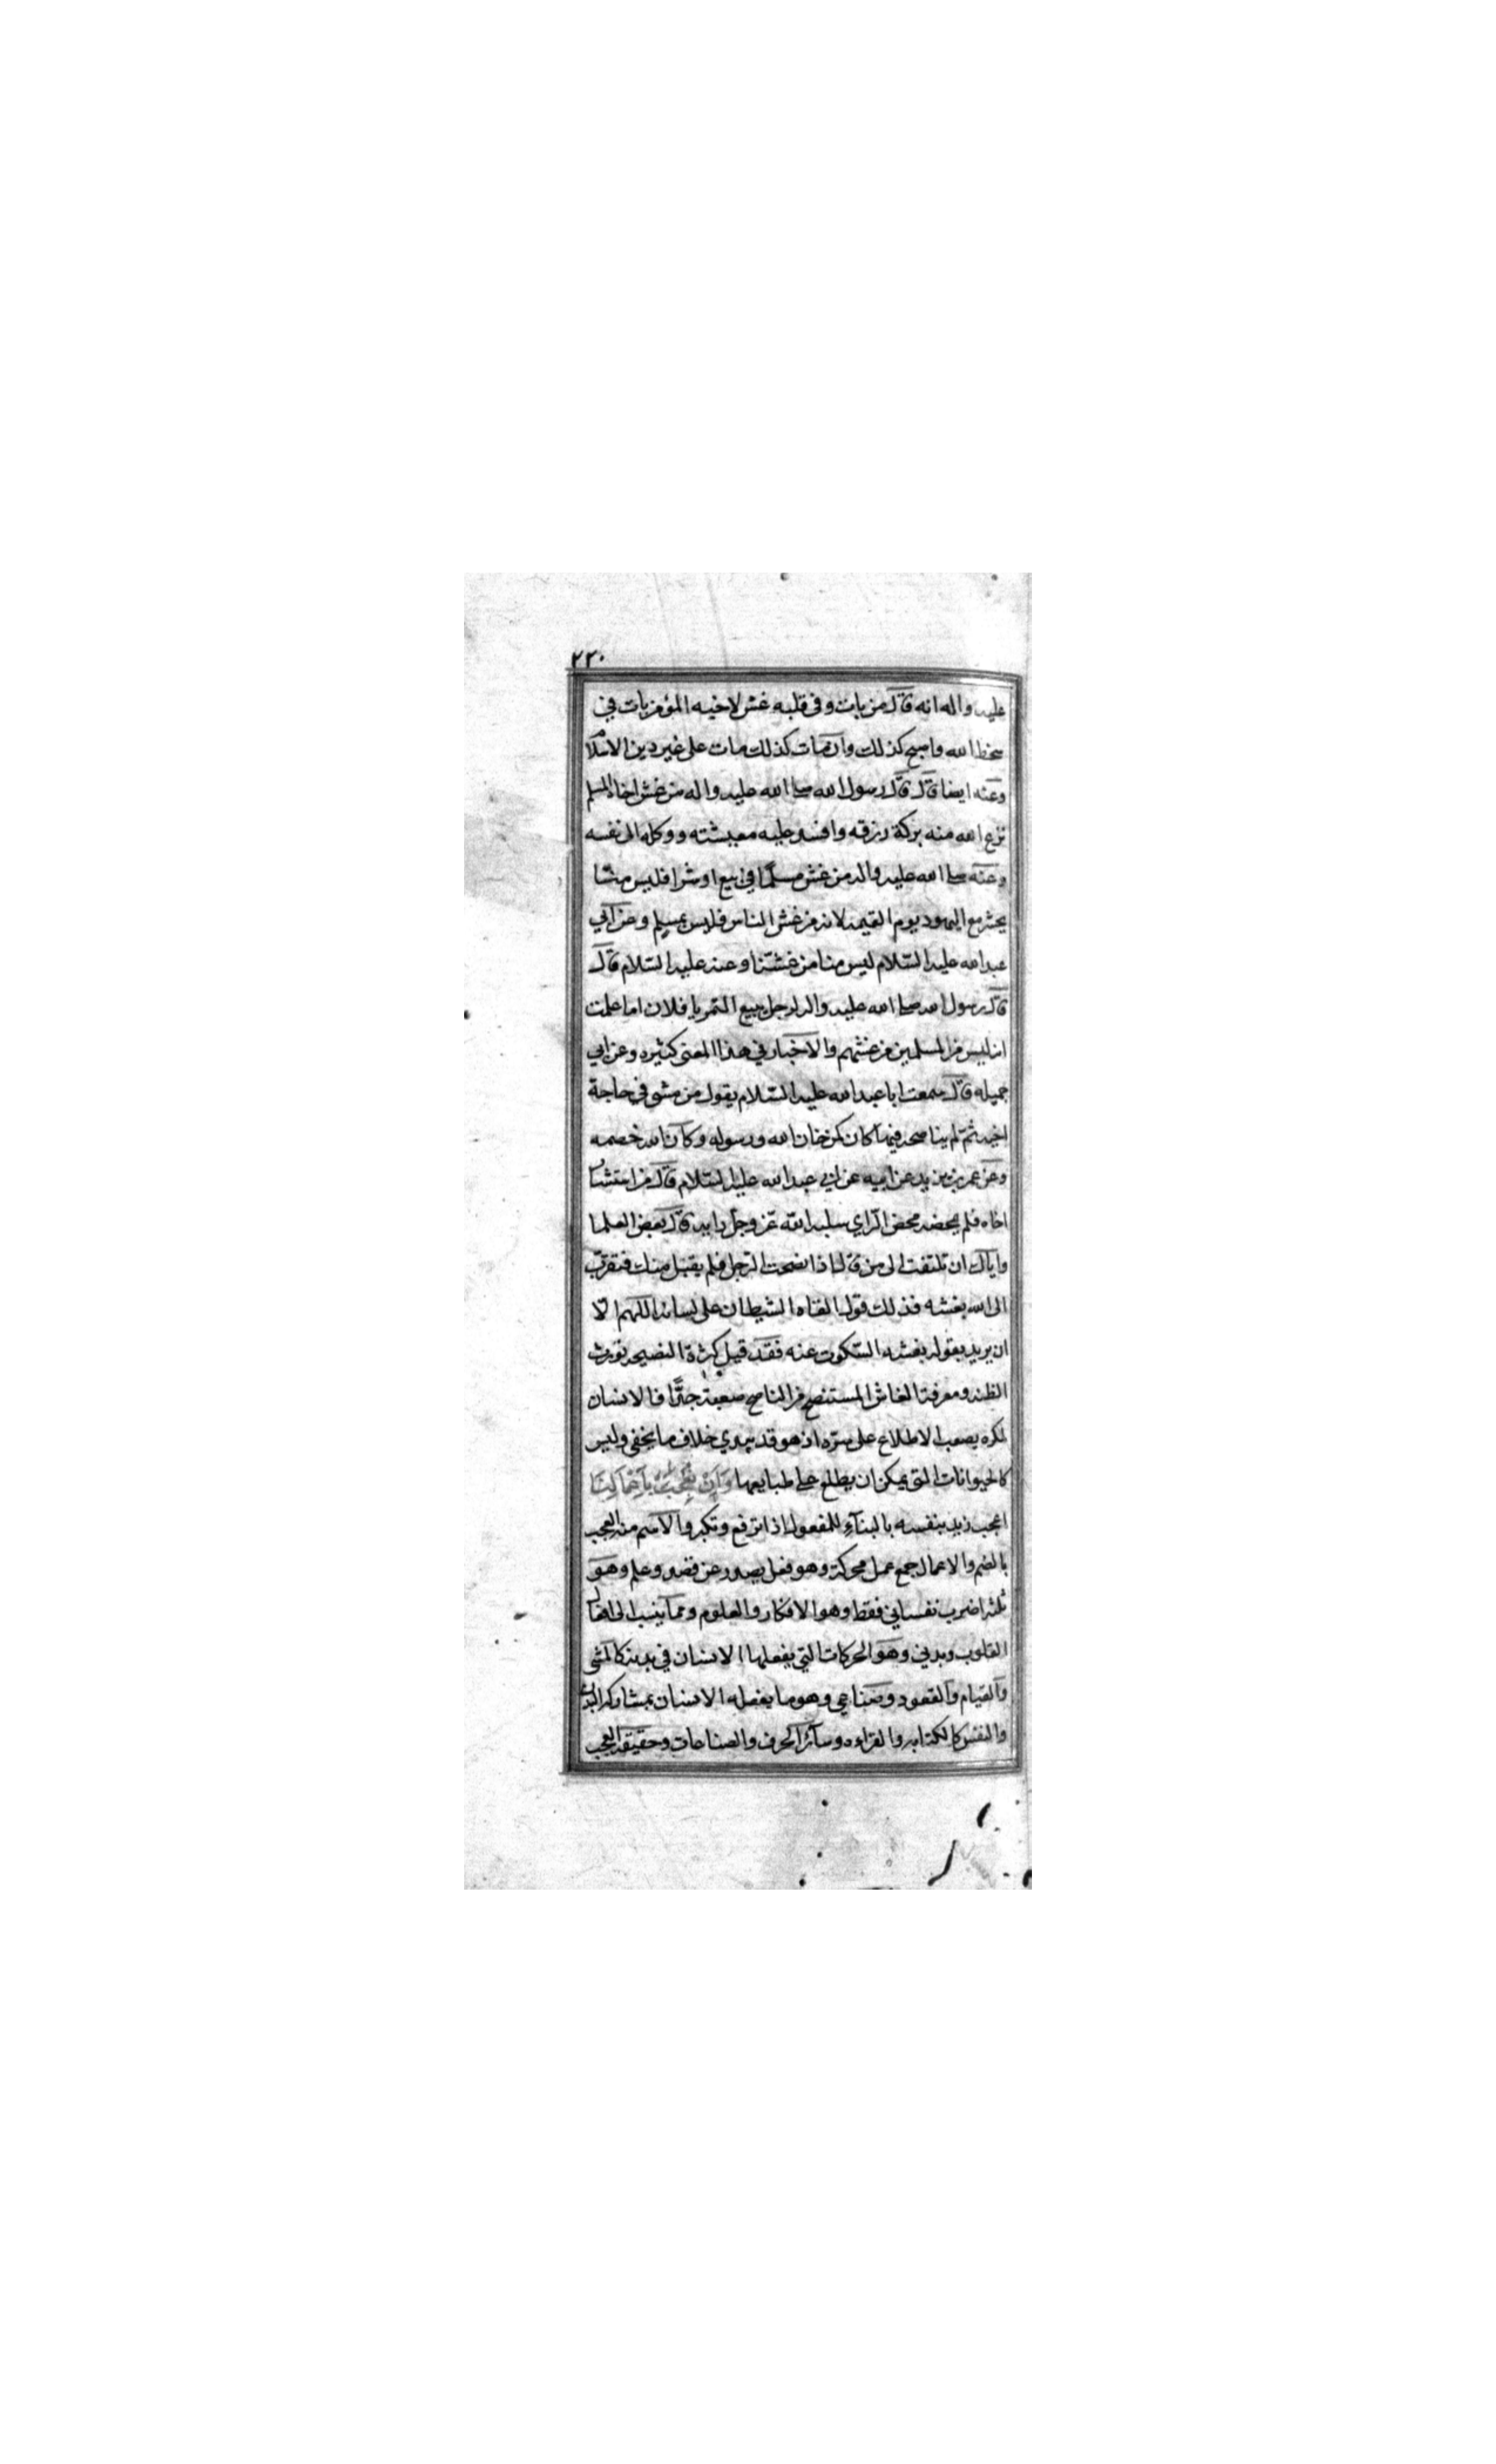 ٢٢٠
عليه واله انه قال من بات وفى قلبه غش لاخيه المؤمن بات في
سخط الله واصبح كذلك وان مات كذلك مات على غير دين الاسلام
وعنه ايضا قال قال رسول الله صلى الله عليه واله من غش اخاه المسلم
نزع الله منه بركة رزقه وافسد عليه معيشته ووكله الى نفسه
وعنه صلى الله عليه واله من غش مسلما في بيع او شرا فليس منّا
يحشر مع اليهود يوم القيمه لانه من غش الناس فليس بمسلم وعن ابي
عبدالله عليه السّلام ليس منا من غشّنا وعنه عليه السّلام قال
قال رسول الله صلى الله عليه واله لرجل يبيع التمر يا فلان اما علمت
انه ليس من المسلمين من غشهم والاخبار في هذا المعنى كثيره وعن ابي
جميله قال سمعت ابا عبدالله عليه السّلام يقول من مشى في حاجة
اخيه ثمّ لم يناصحه فيها كان كمن خان الله ورسوله وكان الله خصمه
وعن عمر بن يزيد عن ابيه عن ابي عبدالله عليه السّلام قال من استشار
اخاه فلم يمحضه محض الرّاي سلبه الله عزّ وجلّ رايه قال بعض العلما
واياك ان تلتفت الى من قال اذا نصحت الرّجل فلم يقبل منك فتقرّب
الى الله بغشه فذلك قول القاه الشيطان على لسانه اللهم الّا
ان يريد بقوله بغشه السّكوت عنه فقد قيل كثرة النصيحه تورث
الظنه ومعرفة الغاش المستنصح من الناصح صعبة جدًّا فالانسان
لمكره يصعب الاطلاع على سرّه اذ هو قد يبدي خلاف ما يخفي وليس
كالحيوانات التى يمكن ان يطلع على طبايعها وَاَنْ نُعْجَبَ بِاَعْمَالِنَا
اعجب زيد بنفسه بالبناء للمفعول اذا ترفع وتكبر والاسم منه العجب
بالضم والاعمال جمع عمل محركة وهو فعل يصدر عن قصد وعلم وهو
ثلثه اضرب نفساني فقط وهو الافكار والعلوم وما ينسب الى افعال
القلوب وبدني وهو الحركات التي يفعلها الانسان في بدنه كالمشي
والقيام والقعود وصناعي وهو ما يفعله الانسان بمشاركه البدن
والنفس كالكتابه والقراءه وسائر الحرف والصناعات وحقيقه العجب